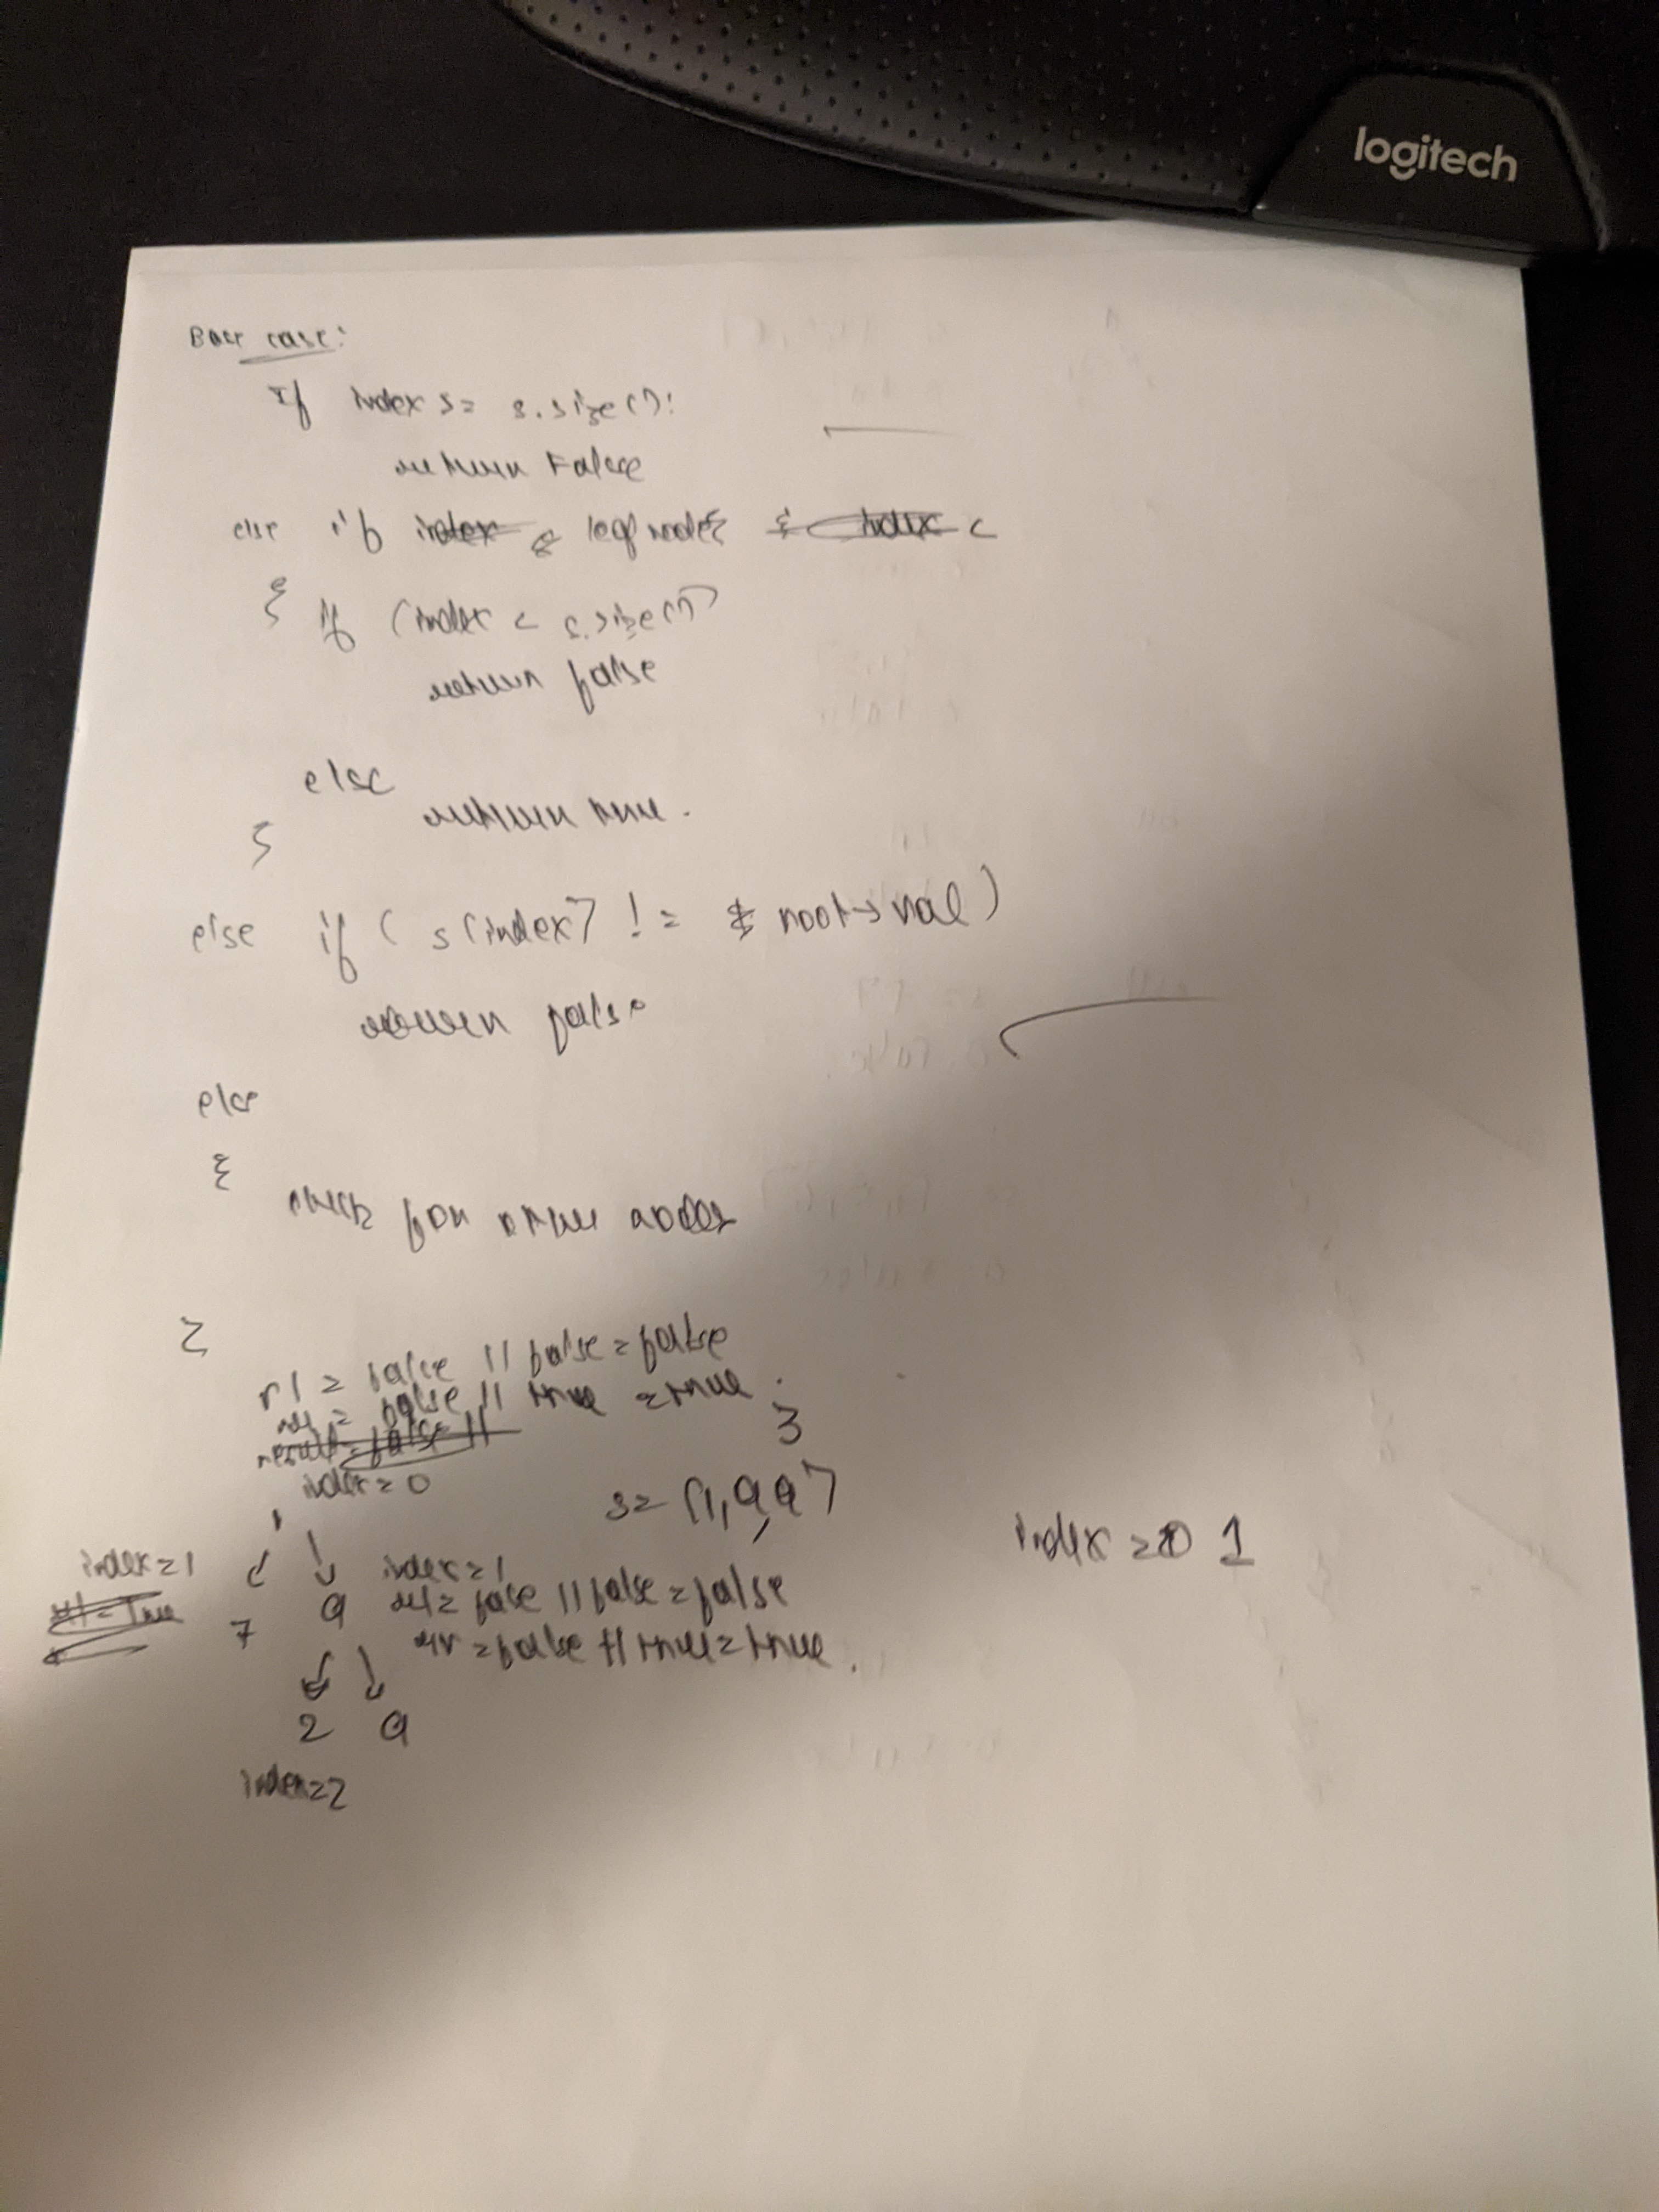 logitech
Base case:
If index >= s.size():
return False
else if index & leaf node & index <
{ if (index < s.size())
return false
else
return true.
}
else if (s[index] != root->val)
return false
else
{
check for other nodes
}
rl = false || false = false
rr = false || true = true.
result = false ||
3
index = 0
s = [1,9,9]
index = 0 1
1
index = 1
index = 1
rl = True
7
9
rl = false || false = false
rr = false || true = true.
2 9
index = 2